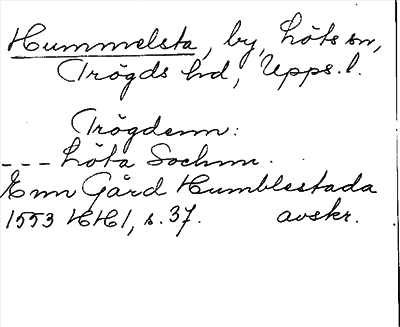 Hummelsta, by, Löts sn,
Trögds hd, Upps. l.
Trögdenn:
--- Löta Sochnn.
Enn Gård Humblestada
1553 HH1, s. 37. avskr.